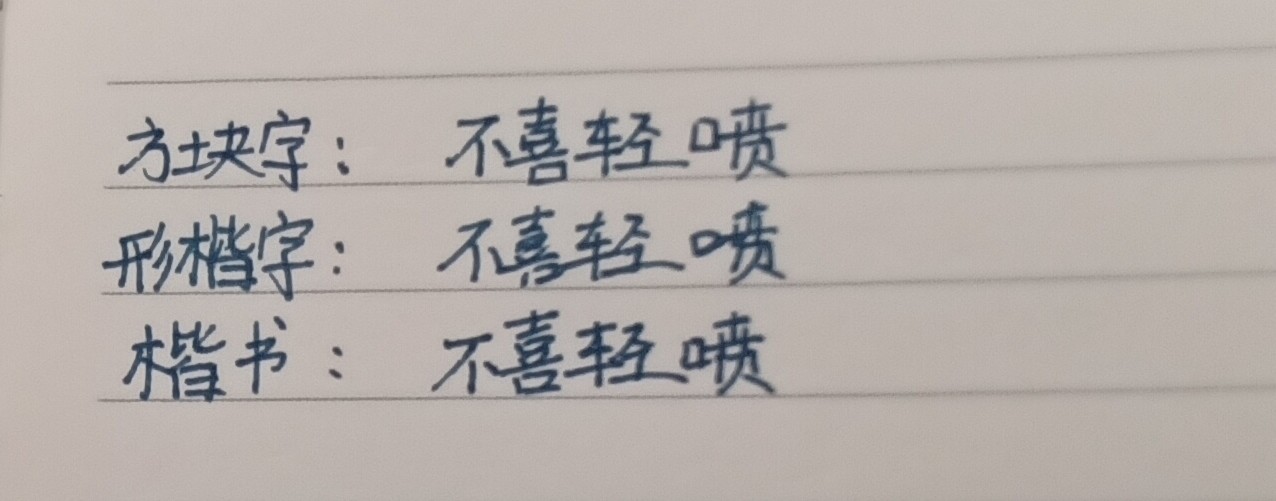 方块字： 不喜轻喷
形楷字： 不喜轻喷
楷书： 不喜轻喷